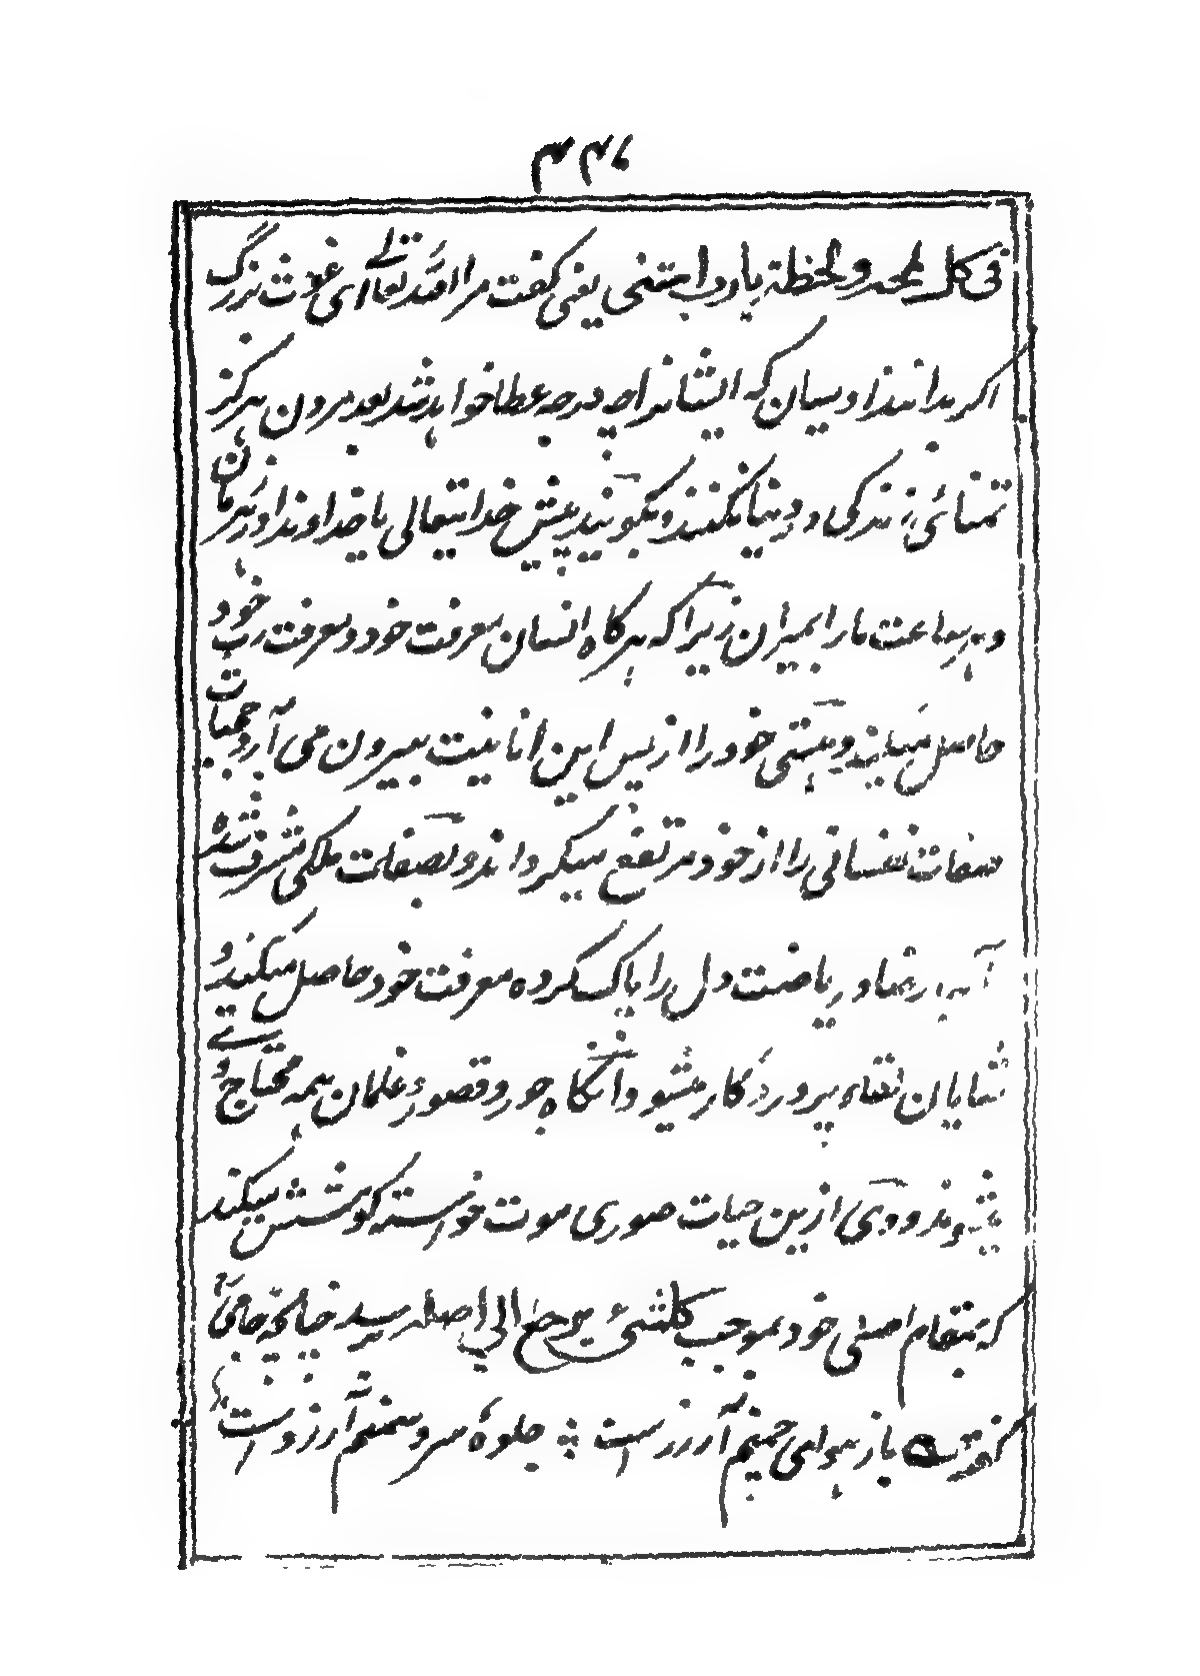 فی کل لمحه ولحظة یا رب امتنی یعنی گفت مرا الله تعالی ای غوث بزرگ
اگر بدانند آدمیان که ایشانرا چه درجه عطا خواهد شد بعد مردن هرگز
تمنائی زندگی در دنیا نکنند و بگویند پیش خدا تیعالی یا خداوندا در هر زمان
و هر ساعت ما را بمیران زیرا که هرگاه انسان معرفت خود و معرفت رب خود
حاصل میساند و هستی خود را از پس این انانیت بیرون می آرد و جمیات
صفات نفسانی را از خود مرتفع میگرداند و بصفات ملکی مشرف شده
آه ریاضت دل را پاک کرده معرفت خود حاصل میکند و
شایان لقاء پروردگار میشود و آنگاه حور و قصور و غلمان همه محتاج وے
میشوند و وی ازین حیات صوری موت خواسته کوشش میکند
که بمقام اصلی خود بموجب کلشیء یرجع الی اصله رسید چنانچه جامی
گفته ست باز هوای چمنم آرزوست جلوهٔ سرو سمنم آرزوست